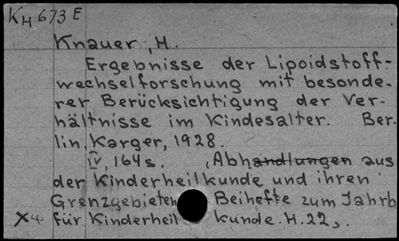 KH 673 E
Knauer, H.
Ergebnisse der Lipoidstoff-
wechselforschung mit besonde-
rer Berücksichtigung der Ver-
hältnisse im Kindesalter. Ber-
lin, Karger, 1928.
IV, 164 s. (Abhandlungen aus
der Kinderheilkunde und ihren
Grenzgebieten Beihefte zum Jahrb
für Kinderheil kunde. H. 22).